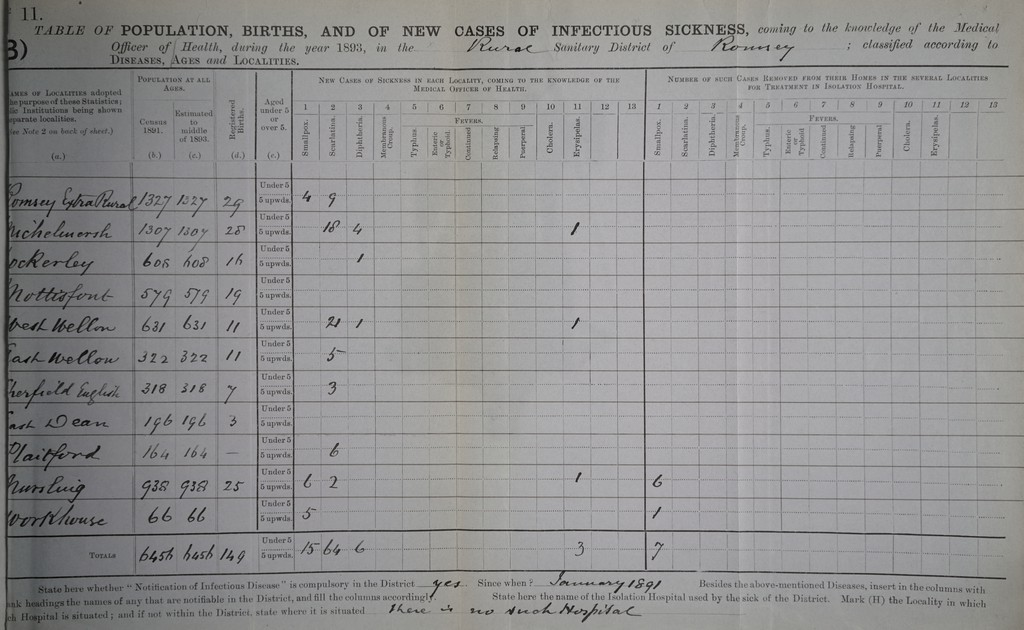 11.
TABLE OF POPULATION, BIRTHS, AND OF NEW CASES OF INFECTIOUS SICKNESS, coming to the knowledge of the Medical
B) Officer of Health, during the year 1893, in the Rural Sanitary District of Romsey ; classified according to
DISEASES, AGES and LOCALITIES.
AMES OF LOCALITIES adopted
he purpose of these Statistics;
lic Institutions being shown
eparate localities.
(See Note 2 on back of sheet.)
(a.)
POPULATION AT ALL AGES.
Census 1891. (b.)
Estimated to middle of 1893. (c.)
Registered Births. (d.)
Aged under 5 or over 5. (e.)
NEW CASES OF SICKNESS IN EACH LOCALITY, COMING TO THE KNOWLEDGE OF THE
MEDICAL OFFICER OF HEALTH.
1 2 3 4 5 6 7 8 9 10 11 12 13
Smallpox. Scarlatina. Diphtheria. Membranous Croup. FEVERS. Typhus. Enteric or Typhoid. Continued. Relapsing. Puerperal. Cholera. Erysipelas.
NUMBER OF SUCH CASES REMOVED FROM THEIR HOMES IN THE SEVERAL LOCALITIES
FOR TREATMENT IN ISOLATION HOSPITAL.
1 2 3 4 5 6 7 8 9 10 11 12 13
Smallpox. Scarlatina. Diphtheria. Membranous Croup. FEVERS. Typhus. Enteric or Typhoid. Continued. Relapsing. Puerperal. Cholera. Erysipelas.
Under 5
Romsey Extra Rural 1327 1327 29 5 upwds. 4 9
Under 5
Michelmersh 1307 1307 28 5 upwds. 18 4 1
Under 5
ockerley 608 608 16 5 upwds. 1
Under 5
Mottisfont 579 579 19 5 upwds.
Under 5
West Wellow 631 631 11 5 upwds. 21 1 1
Under 5
East Wellow 322 322 11 5 upwds. 5
Under 5
Sherfield English 318 318 7 5 upwds. 3
Under 5
East Dean 196 196 3 5 upwds.
Under 5
Plaitford 164 164 — 5 upwds. 6
Under 5
Nursling 938 938 25 5 upwds. 6 2 1 6
Under 5
Workhouse 66 66 5 upwds. 5 1
Under 5
TOTALS 6456 6456 149 5 upwds. 15 64 6 3 7
State here whether "Notification of Infectious Disease" is compulsory in the District yes Since when? January 1891 Besides the above-mentioned Diseases, insert in the columns with
nk headings the names of any that are notifiable in the District, and fill the columns accordingly. State here the name of the Isolation Hospital used by the sick of the District. Mark (H) the Locality in which
ch Hospital is situated; and if not within the District, state where it is situated there is no such Hospital